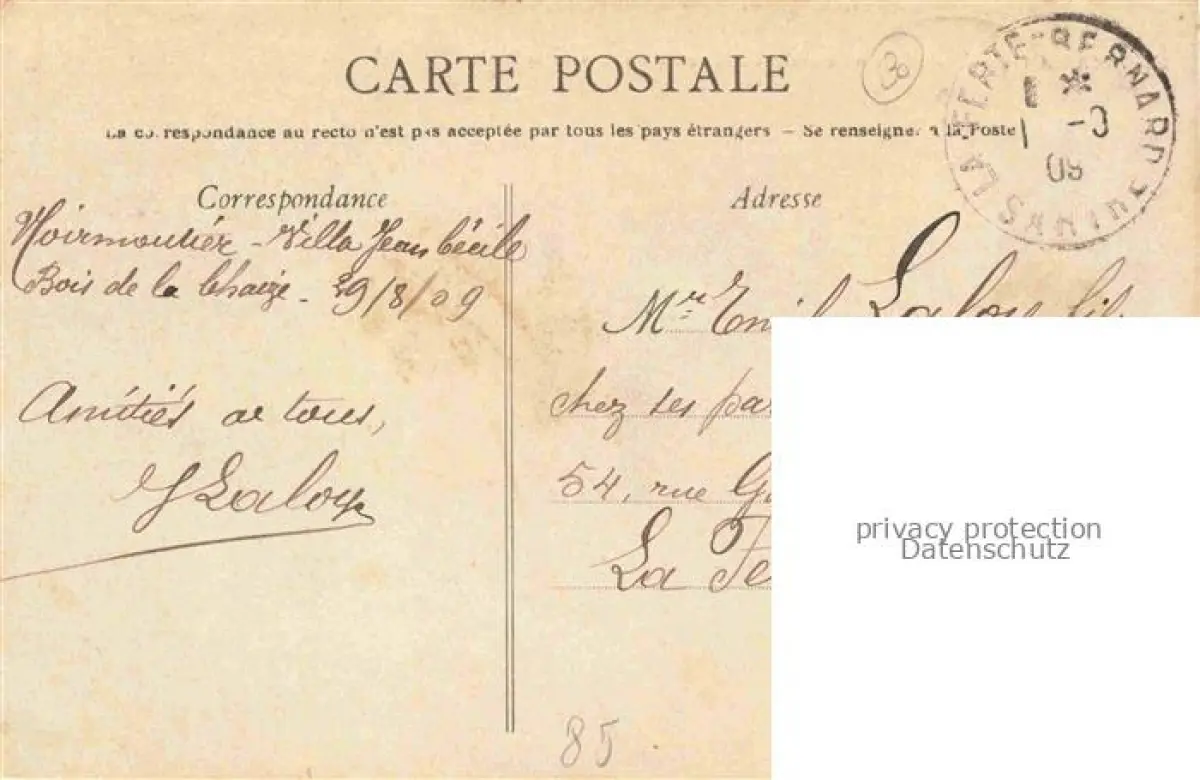 CARTE POSTALE
38
LA FERTE-BERNARD SARTHE
* 1 -9 09
La correspondance au recto n'est pas acceptée par tous les pays étrangers – Se renseigner à la Poste
Correspondance
Adresse
Noirmoutier - Villa Jean Cécile
Bois de la Chaize - 29/8/09
Amitiés à tous,
Laloy
Mr Emile Laloy fils
chez ses par
54, rue G
La Fe
privacy protection
Datenschutz
85